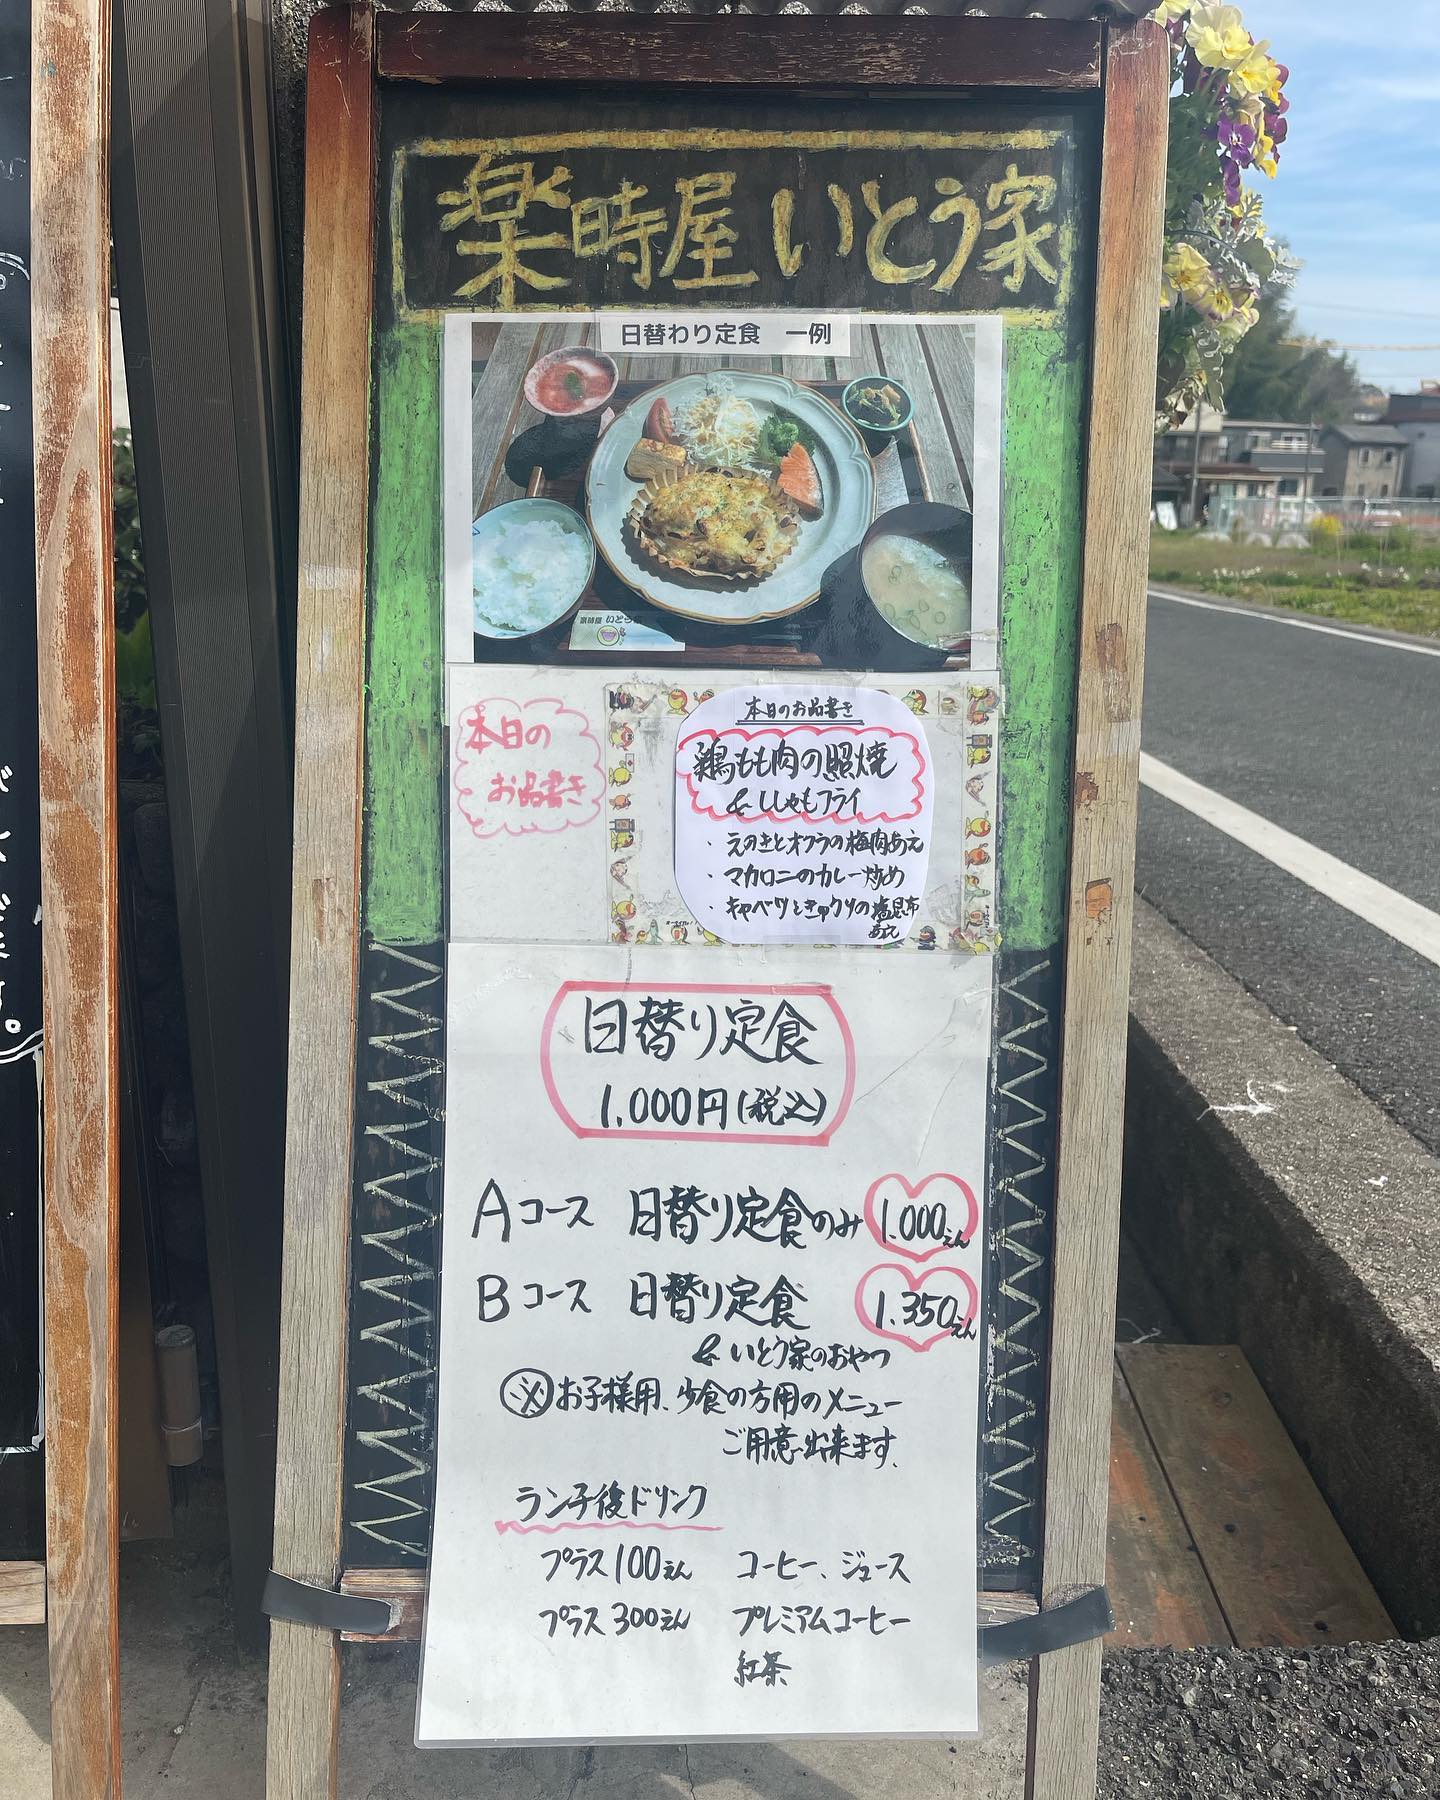 楽時屋 いとう家
日替わり定食 一例
楽時屋 いとう家
本日の
お品書き
本日のお品書き
鶏もも肉の照焼
& ししゃもフライ
・えのきとオクラの梅肉あえ
・マカロニのカレー炒め
・キャベツときゅウリの塩昆布
あえ
日替り定食
1,000円(税込)
Aコース 日替り定食のみ 1.000えん
Bコース 日替り定食 1.350えん
& いとう家のおやつ
※お子様用、少食の方用のメニュー
ご用意出来ます。
ランチ後ドリンク
プラス100えん コーヒー、ジュース
プラス300えん プレミアムコーヒー
紅茶